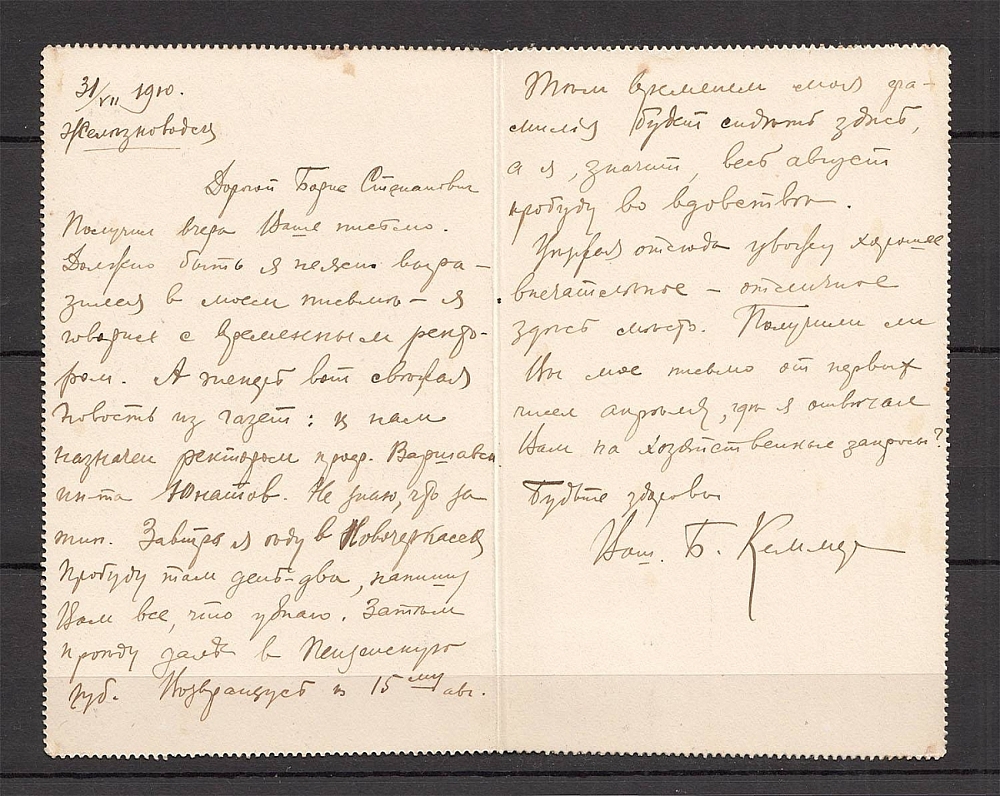 31/VII 1910.
Железноводск
Дорогой Борис Степанович
Получил вчера Ваше письмо.
Должно быть я неясно выра-
зился в моем письмѣ – я
говорил с временным ректо-
ром. А теперь вот свѣжая
новость из газет: к нам
назначен ректором проф. Варшавск
ин-та Юнатов. Не знаю, что за
тип. Завтра я ѣду в Новочеркасск
Пробуду там день-два, напишу
Вам все, что узнаю. Затѣм
проѣду далѣе в Пензенскую
губ. Возвращусь к 15му авг.
Тѣм временем моя фа-
милія будет сидѣть здѣсь,
а я, значит, весь август
пробуду во вдовствѣ.
Уѣзжая отсюда увожу хорошее
впечатлѣніе – отличное
здѣсь мѣсто. Получили ли
Вы мое письмо от первых
чисел апрѣля, гдѣ я отвѣчал
Вам на хозяйственные запросы?
Будьте здоровы
Ваш Б.